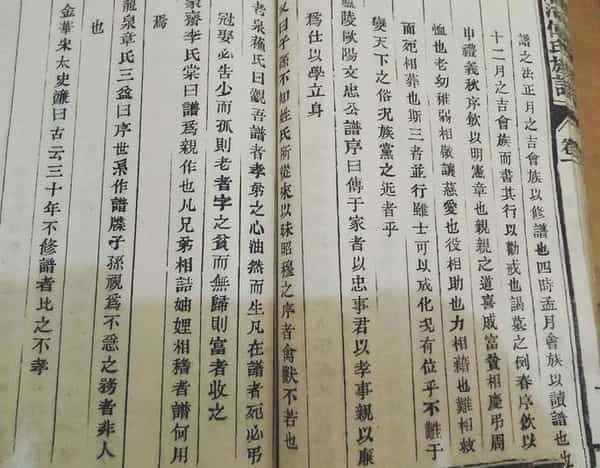 氏族譜 卷一
譜之法正月之吉會族以修譜也四時孟月會族以讀譜也
十二月之吉會族而書其行以勸戒也謁墓之例春序飲以
申禮義秋序飲以明憲章也親親之道喜戚富貧相慶弔周
恤也老幼稚弱相敬讓慈愛也役相助也力相藉也難相救
而死相葬也斯三者並行雖士可以成化況有位乎不難于
變天下之俗況族黨之近者乎
廬陵歐陽文忠公譜序曰傳于家者以忠事君以孝事親以廉
爲仕以學立身
又曰子孫不知姓氏所從來以昧昭穆之序者禽獸不若也
老泉蘇氏曰觀吾譜者孝弟之心油然而生凡在譜者死必弔
冠娶必告少而孤則老者字之貧而無歸則富者收之
蒙齋李氏棠曰譜爲親作也凡兄弟相詬妯娌相稽者譜何用
焉
龍泉章氏三益曰序世系作譜牒子孫視爲不急之務者非人
也
金華宋太史濂曰古云三十年不修譜者比之不孝